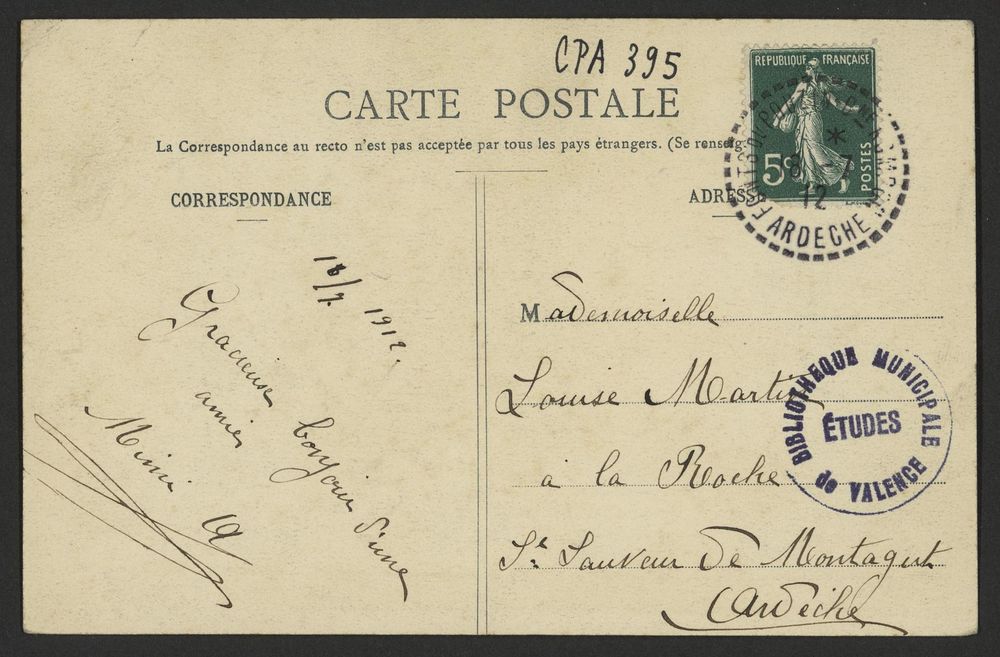 CPA 395
CARTE POSTALE
La Correspondance au recto n'est pas acceptée par tous les pays étrangers. (Se renseig
CORRESPONDANCE
ADRESSE
REPUBLIQUE FRANÇAISE
5c
POSTES
8 - 7
12
ARDECHE
18/7 1912.
Gracieuse bonjour d'une
amie
Mimi A
Mademoiselle
Louise Martin
à la Roche
St Sauveur de Montagut
Ardèche
BIBLIOTHEQUE MUNICIPALE
ÉTUDES
de VALENCE